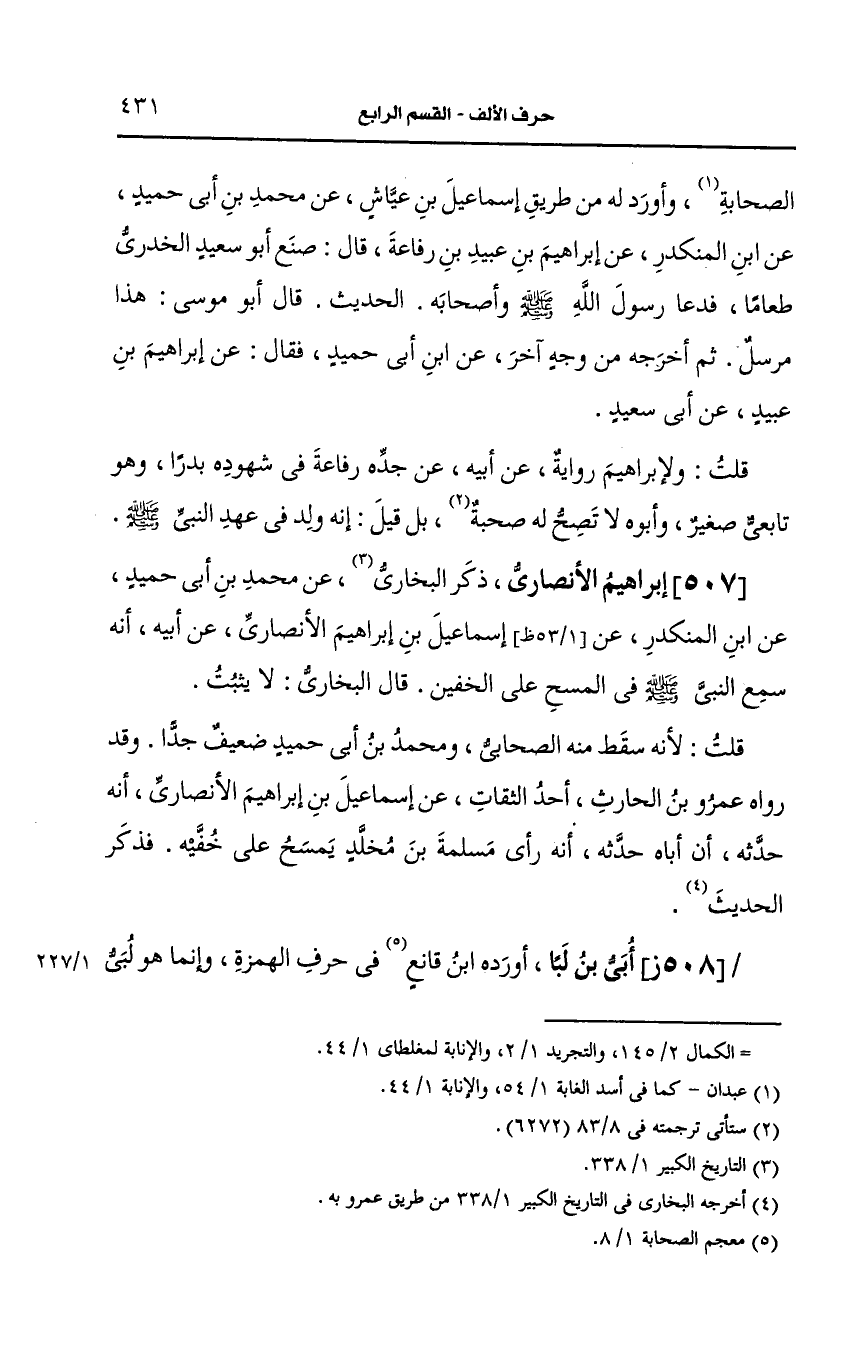 حرف الألف - القسم الرابع ٤٣١
الصحابةِ(١) ، وأورَد له من طريقِ إسماعيلَ بنِ عيَّاشٍ ، عن محمدِ بنِ أبى حميدٍ ،
عن ابنِ المنكدرِ ، عن إبراهيمَ بنِ عبيدِ بنِ رفاعةَ ، قال : صنَع أبو سعيدٍ الخدرىُّ
طعامًا ، فدعا رسولَ اللَّهِ ﷺ وأصحابَه . الحديث . قال أبو موسى : هذا
مرسلٌ . ثم أخرَجه من وجهٍ آخرَ ، عن ابنِ أبى حميدٍ ، فقال : عن إبراهيمَ بنِ
عبيدٍ ، عن أبى سعيدٍ .
قلتُ : ولإبراهيمَ روايةٌ ، عن أبيه ، عن جدِّه رفاعةَ فى شهودِه بدرًا ، وهو
تابعىٌّ صغيرٌ ، وأبوه لا تَصِحُّ له صحبةٌ(٢) ، بل قيلَ : إنه ولِد فى عهدِ النبىِّ ﷺ .
[٥٠٧] إبراهيمُ الأنصارىُّ ، ذكَر البخارىُّ(٣) ، عن محمدِ بنِ أبى حميدٍ ،
عن ابنِ المنكدرِ ، عن [٥٣/١ظ] إسماعيلَ بنِ إبراهيمَ الأنصارىِّ ، عن أبيه ، أنه
سمِع النبىَّ ﷺ فى المسحِ على الخفين . قال البخارىُّ : لا يثبُتُ .
قلتُ : لأنه سقَط منه الصحابىُّ ، ومحمدُ بنُ أبى حميدٍ ضعيفٌ جدًّا . وقد
رواه عمرُو بنُ الحارثِ ، أحدُ الثقاتِ ، عن إسماعيلَ بنِ إبراهيمَ الأنصارىِّ ، أنه
حدَّثه ، أن أباه حدَّثه ، أنه رأى مَسلمةَ بنَ مُخلَّدٍ يَمسَحُ على خُفَّيْه . فذكَر
الحديثَ(٤) .
/ [٥٠٨ز] أُبَىُّ بنُ لَبًا ، أورَده ابنُ قانعٍ(٥) فى حرفِ الهمزةِ ، وإنما هو لُبَىُّ ٢٢٧/١
= الكمال ٢/ ١٤٥، والتجريد ١/ ٢، والإنابة لمغلطاى ١/ ٤٤.
(١) عبدان - كما فى أسد الغابة ١/ ٥٤، والإنابة ١/ ٤٤.
(٢) ستأتى ترجمته فى ٨٣/٨ (٦٢٧٢) .
(٣) التاريخ الكبير ١/ ٣٣٨.
(٤) أخرجه البخارى فى التاريخ الكبير ٣٣٨/١ من طريق عمرو به .
(٥) معجم الصحابة ١/ ٨.